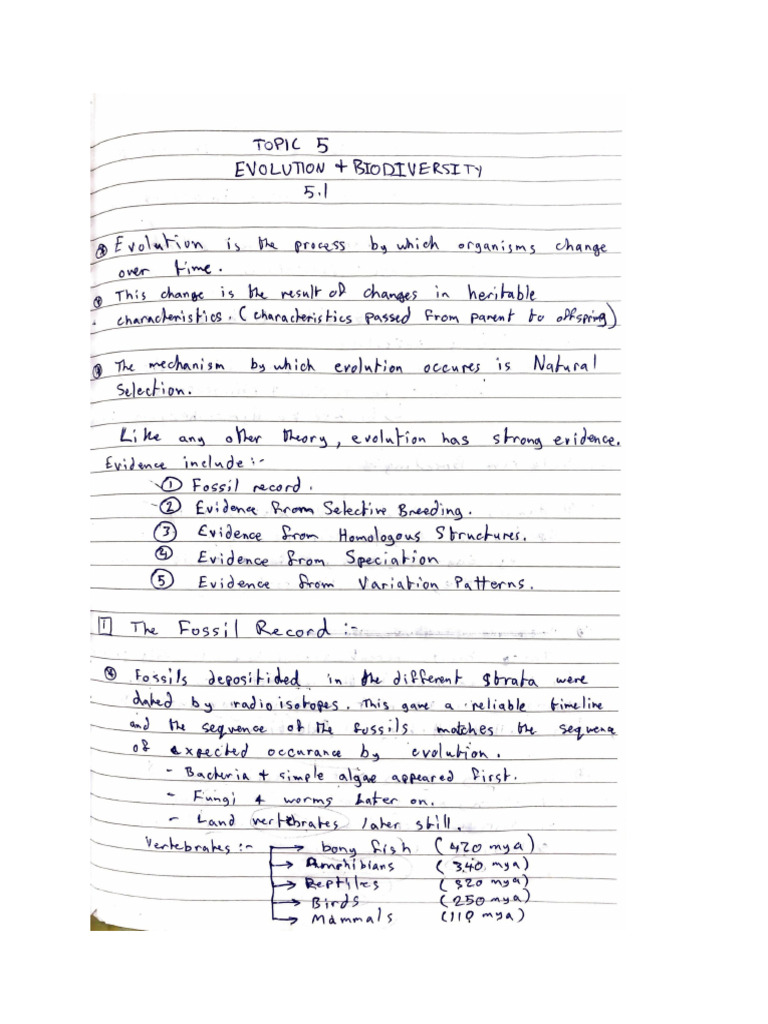 TOPIC 5
EVOLUTION + BIODIVERSITY
5.1
Evolution is the process by which organisms change
over time.
This change is the result of changes in heritable
characteristics. (characteristics passed from parent to offspring)
The mechanism by which evolution occures is Natural
Selection.
Like any other theory, evolution has strong evidence.
Evidence include :-
① Fossil record.
② Evidence from Selective Breeding.
③ Evidence from Homologous Structures.
④ Evidence from Speciation
⑤ Evidence from Variation Patterns.
1 The Fossil Record :-
Fossils depositided in the different strata were
dated by radioisotopes. This gave a reliable timeline
and the sequence of the fossils matches the sequence
of expected occurance by evolution.
- Bacteria + simple algae appeared first.
- Fungi & worms later on.
- Land vertebrates later still.
Vertebrates :- → bony fish (420 mya)
→ Amphibians (340 mya)
→ Reptiles (320 mya)
→ Birds (250 mya)
→ Mammals (110 mya)